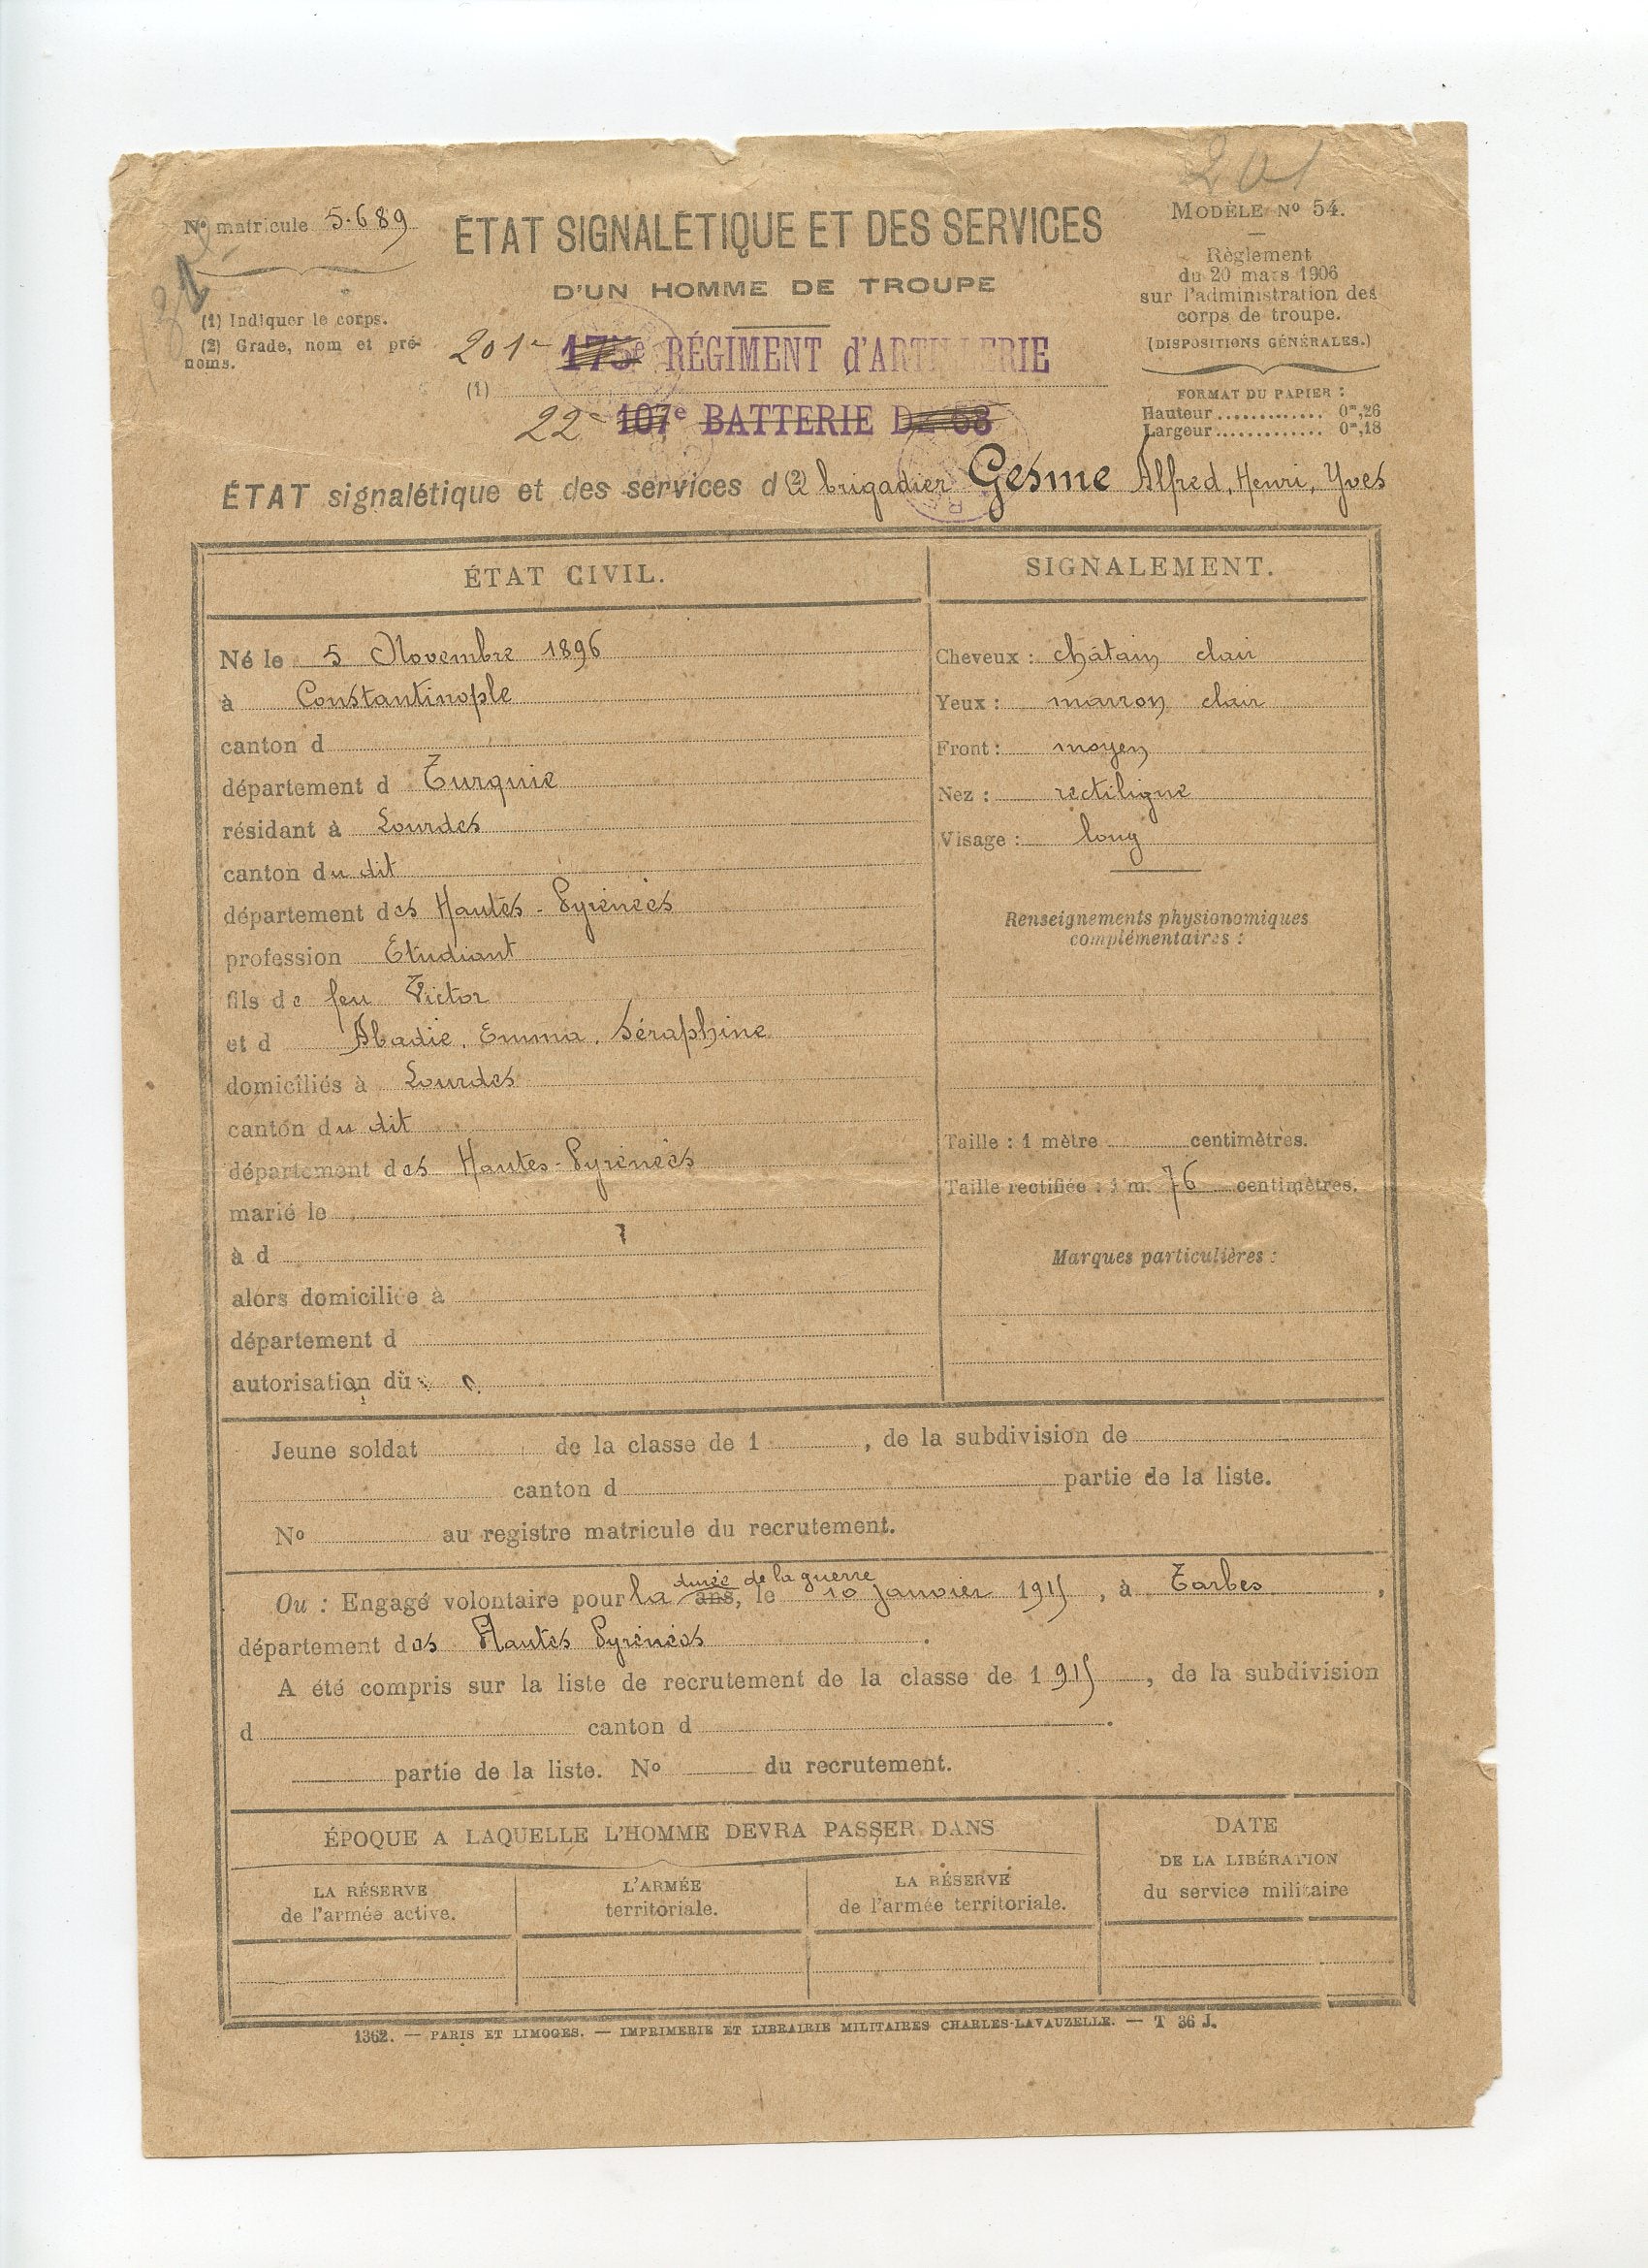 201
Nº matricule 5.689
ÉTAT SIGNALÉTIQUE ET DES SERVICES
D'UN HOMME DE TROUPE
MODÈLE Nº 54.
Règlement
du 20 mars 1906
sur l'administration des
corps de troupe.
(DISPOSITIONS GÉNÉRALES.)
FORMAT DU PAPIER :
Hauteur ............. 0ᵐ,26
Largeur ............. 0ᵐ,18
(1) Indiquer le corps.
(2) Grade, nom et pré-
noms.
201e 175e RÉGIMENT d'ARTILLERIE
(1)
22e 107e BATTERIE DE 58
ÉTAT signalétique et des services d (2) brigadier Gesme Alfred, Henri, Yves
ÉTAT CIVIL.
Né le 5 Novembre 1896
à Constantinople
canton d
département d Turquie
résidant à Lourdes
canton du dit
département des Hautes-Pyrénées
profession Etudiant
fils de feu Victor
et d Abadie, Emma, Séraphine
domiciliés à Lourdes
canton du dit
département des Hautes-Pyrénées
marié le
à d
alors domiciliée à
département d
autorisation du
SIGNALEMENT.
Cheveux : châtain clair
Yeux : marron clair
Front : moyen
Nez : rectiligne
Visage : long
Renseignements physionomiques
complémentaires :
Taille : 1 mètre centimètres.
Taille rectifiée : 1 m. 76 centimètres.
Marques particulières :
Jeune soldat de la classe de 1 , de la subdivision de
canton d partie de la liste.
Nº au registre matricule du recrutement.
durée de la guerre
Ou : Engagé volontaire pour la ans, le 10 Janvier 1915, à Tarbes,
département des Hautes Pyrénées.
A été compris sur la liste de recrutement de la classe de 1915, de la subdivision
d canton d .
partie de la liste. Nº du recrutement.
ÉPOQUE A LAQUELLE L'HOMME DEVRA PASSER DANS
LA RÉSERVE
de l'armée active.
L'ARMÉE
territoriale.
LA RÉSERVE
de l'armée territoriale.
DATE
DE LA LIBÉRATION
du service militaire
1362. — PARIS ET LIMOGES. — IMPRIMERIE ET LIBRAIRIE MILITAIRES CHARLES-LAVAUZELLE. — T 36 J.